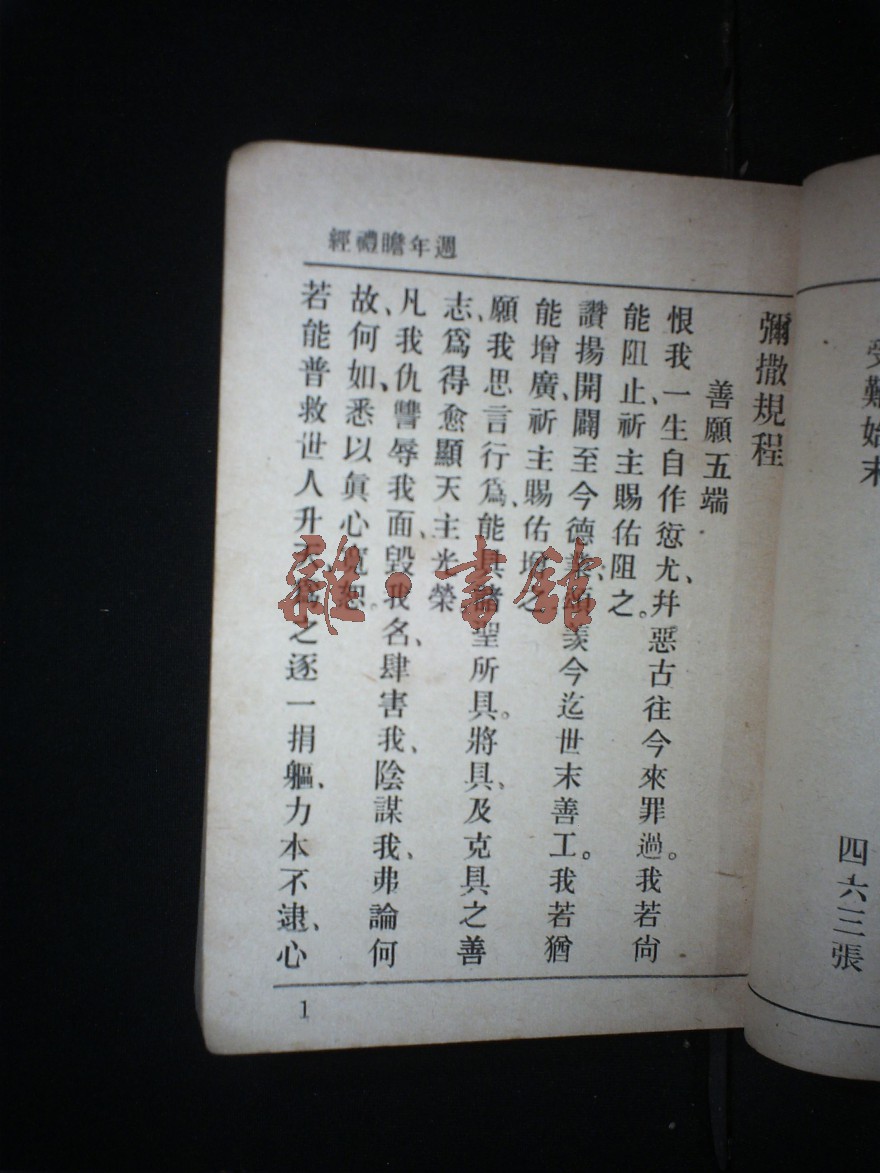 受難始末
四六三張
週年瞻禮經
彌撒規程
善願五端
恨我一生自作愆尤、幷惡古往今來罪過。我若尙
能阻止、祈主賜佑阻之。
讚揚開闢至今德業、頌羨今迄世末善工。我若猶
能增廣、祈主賜佑增之
願我思言行爲、能具諸聖所具。將具、及克具之善
志、爲得愈顯天主光榮
凡我仇讐辱我面、毀我名、肆害我、陰謀我、弗論何
故、何如、悉以眞心寬恕。
若能普救世人升天、爲之逐一捐軀、力本不逮、心
1
雜·書館